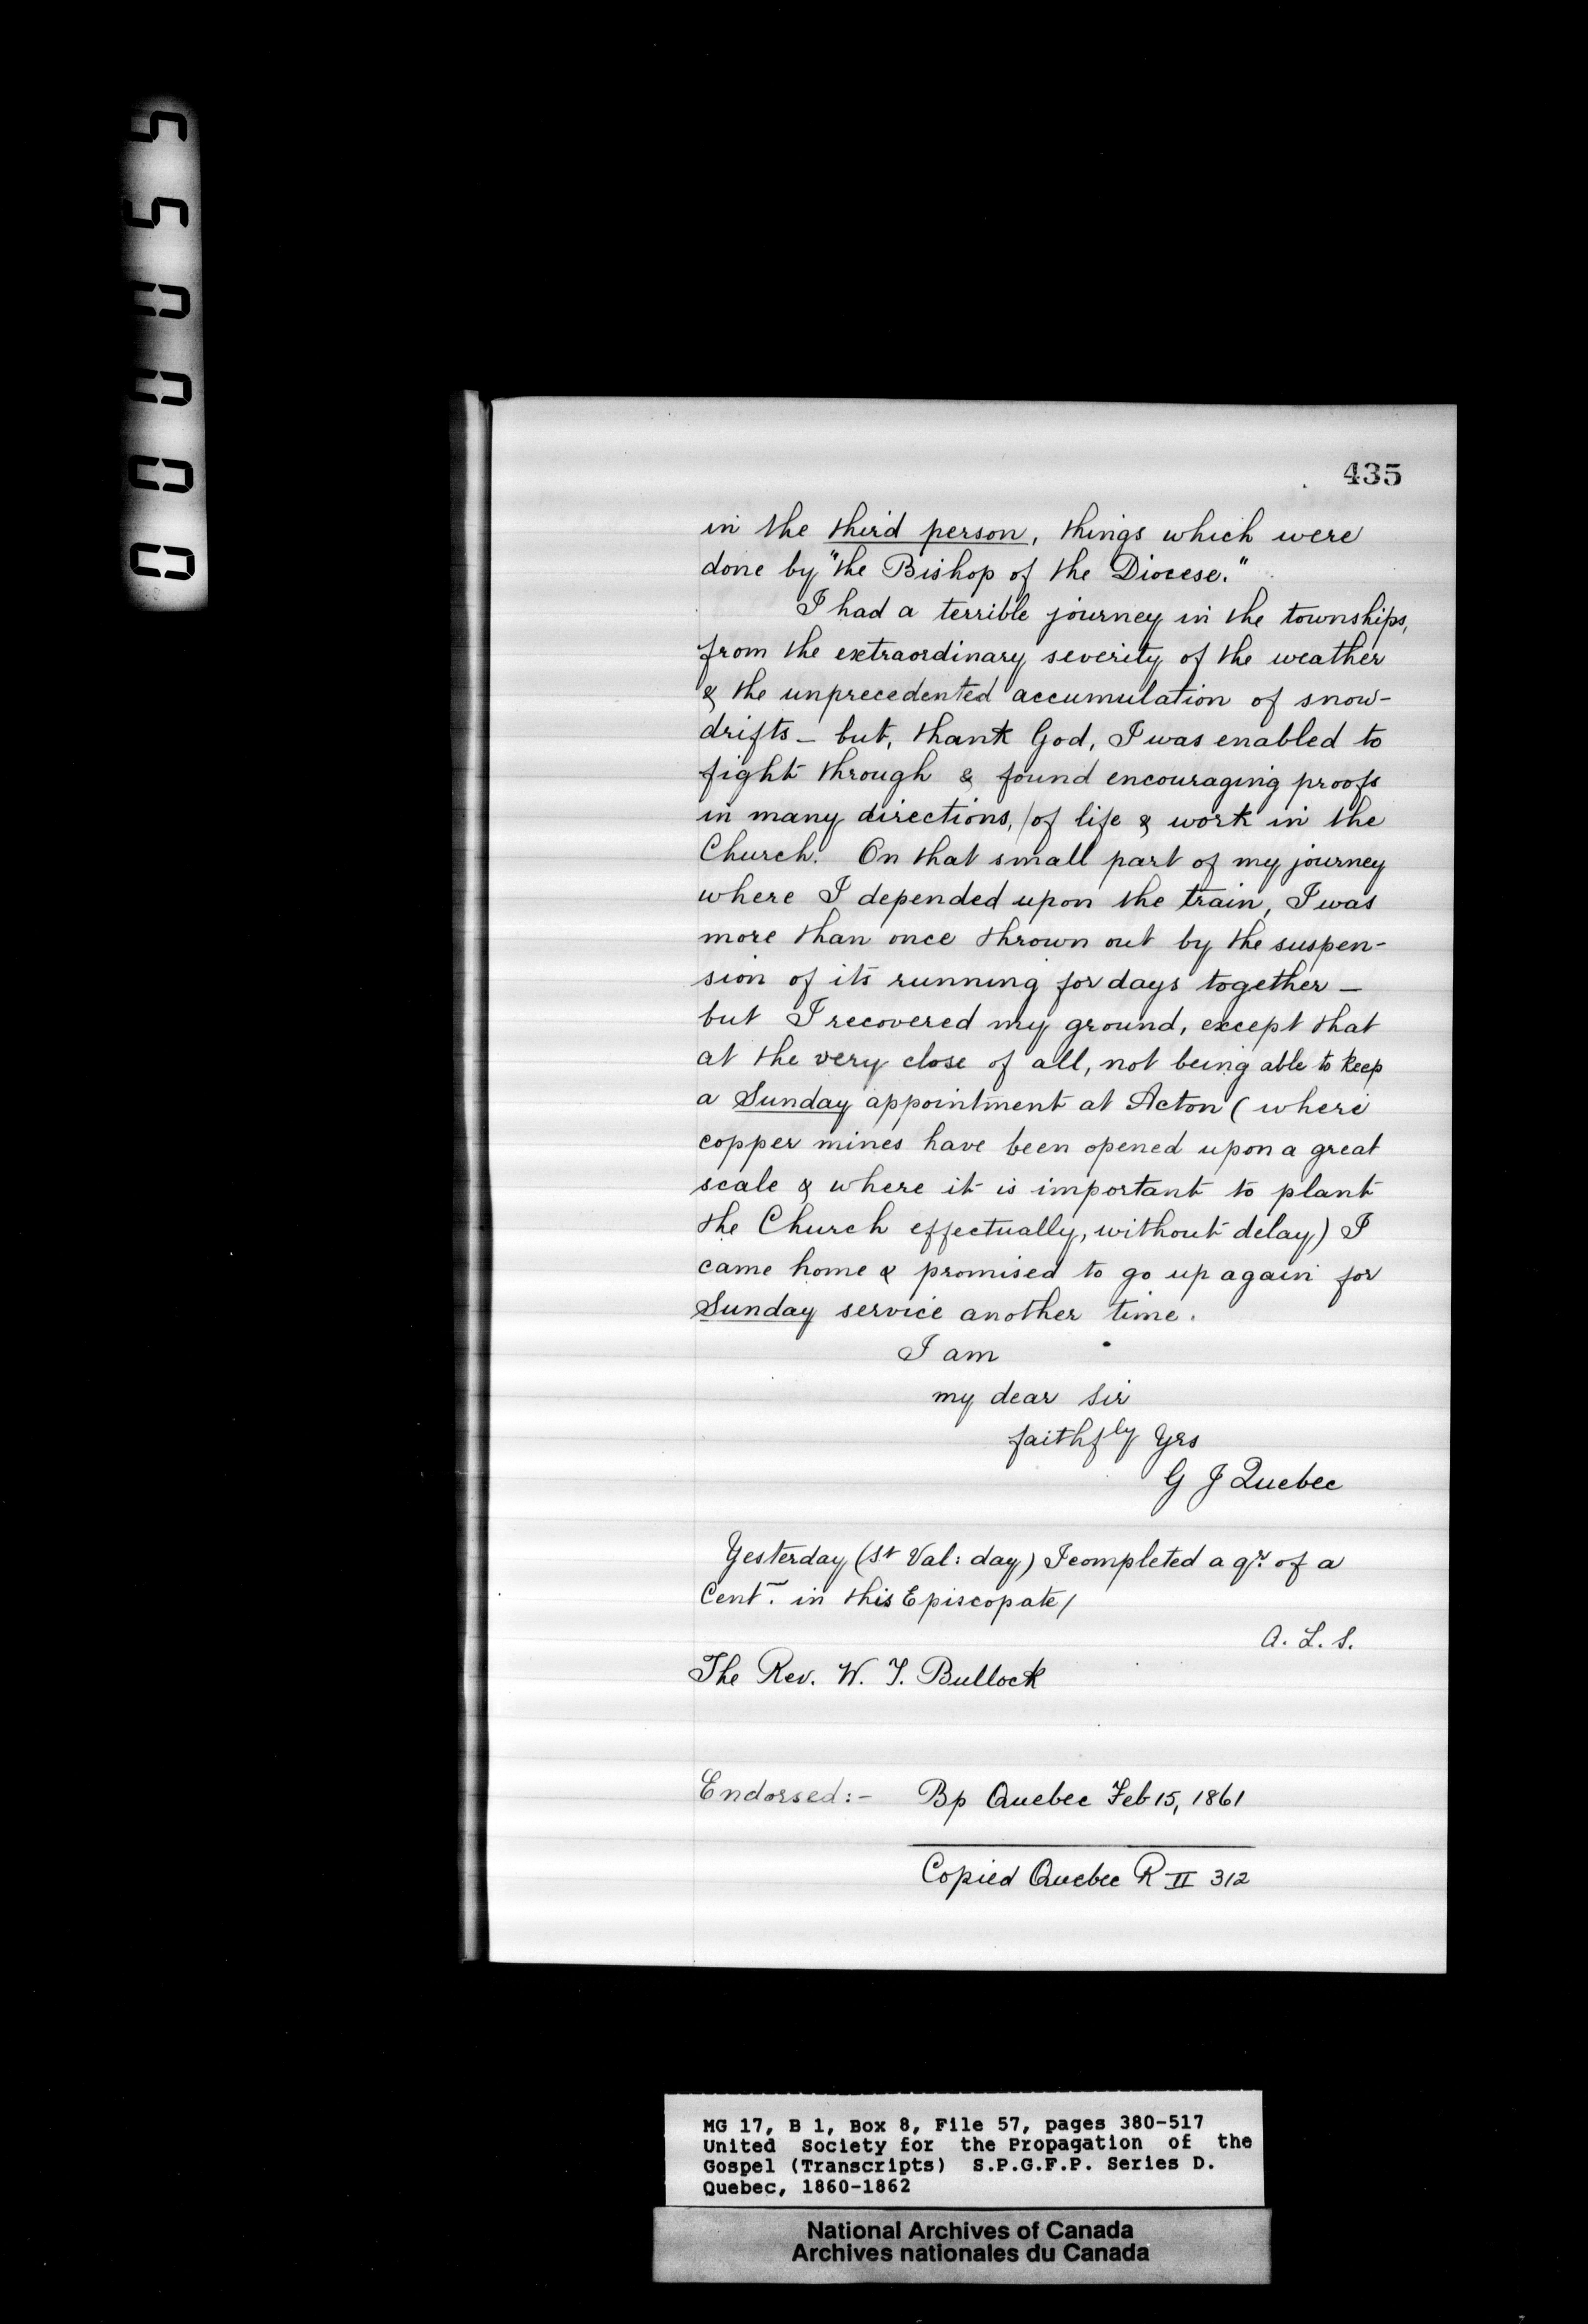 000055
435
in the third person, things which were
done by "the Bishop of the Diocese."
I had a terrible journey in the townships,
from the extraordinary severity of the weather
& the unprecedented accumulation of snow-
drifts — but, thank God, I was enabled to
fight through & found encouraging proofs
in many directions, /of life & work in the
Church. On that small part of my journey
where I depended upon the train, I was
more than once thrown out by the suspen-
sion of its running for days together —
but I recovered my ground, except that
at the very close of all, not being able to keep
a Sunday appointment at Acton ( where
copper mines have been opened upon a great
scale & where it is important to plant
the Church effectually, without delay) I
came home & promised to go up again for
Sunday service another time.
I am
my dear Sir
faithfly Yrs
G J Quebec
Yesterday (St Val: day) I completed a qr. of a
Cent. in this Episcopate/
A. L. S.
The Rev. W. T. Bullock
Endorsed:- Bp Quebec Feb 15, 1861
Copied Quebec R II 312
MG 17, B 1, Box 8, File 57, pages 380-517
United Society for the Propagation of the
Gospel (Transcripts) S.P.G.F.P. Series D.
Quebec, 1860-1862
National Archives of Canada
Archives nationales du Canada